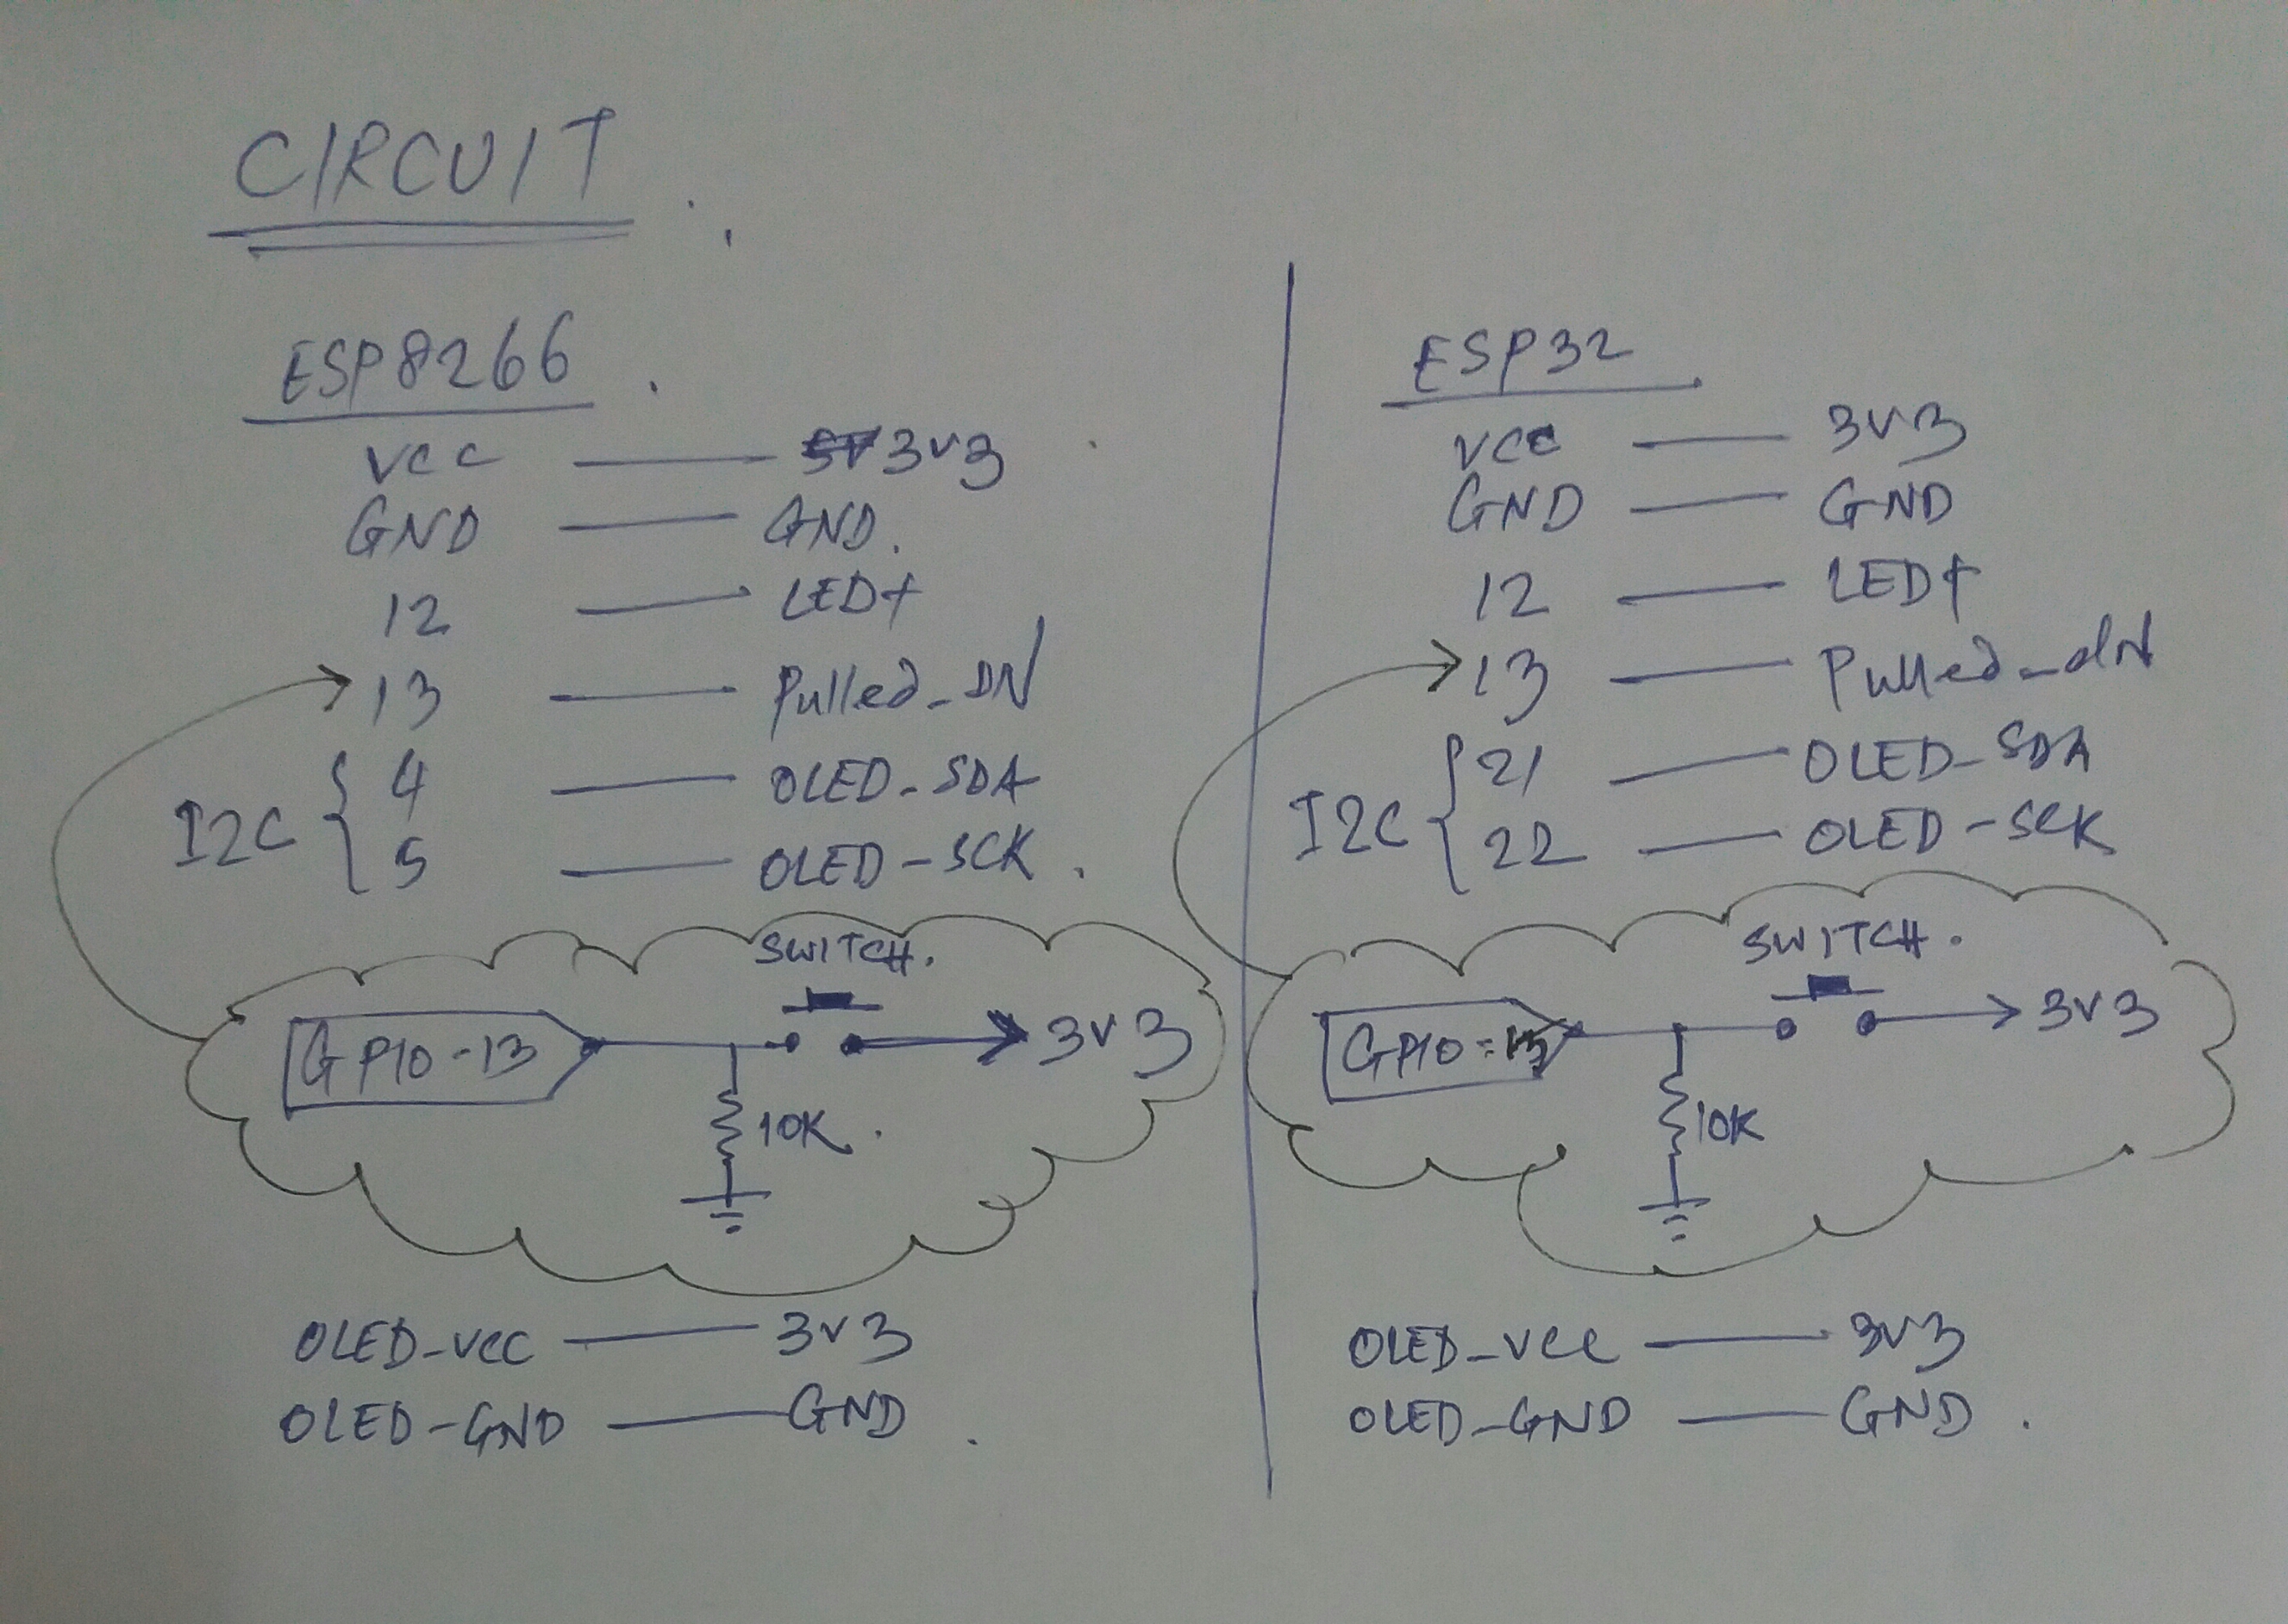 CIRCUIT
ESP8266
VCC — 3V3
GND — GND.
12 — LED+
13 — Pulled_DN
I2C { 4 — OLED-SDA
5 — OLED-SCK.
SWITCH.
GPIO-13
3V3
10K.
OLED-VCC — 3V3
OLED-GND — GND
ESP32
VCC — 3V3
GND — GND
12 — LED+
13 — Pulled-dN
I2C { 21 — OLED-SDA
22 — OLED-SCK
SWITCH.
GPIO-13
3V3
10K
OLED-VCC — 3V3
OLED-GND — GND.